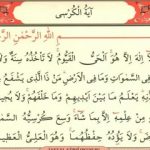 آيَةُ الْكُرْسِي
بِسْمِ اللَّهِ الرَّحْمَٰنِ الرَّ
لَا إِلَٰهَ إِلَّا هُوَ الْحَيُّ الْقَيُّومُ لَا تَأْخُذُهُ سِنَةٌ وَلَا
فِي السَّمَوَاتِ وَمَا فِي الْأَرْضِ مَنْ ذَا الَّذِي يَشْفَعُ
يَعْلَمُ مَا بَيْنَ أَيْدِيهِمْ وَمَا خَلْفَهُمْ وَلَا يُحِيطُو
مِنْ عِلْمِهِ إِلَّا بِمَا شَاءَ وَسِعَ كُرْسِيُّهُ السَّمَوَا
وَلَا يَئُودُهُ حِفْظُهُمَا وَهُوَ الْعَلِيُّ الْعَظِيمُ